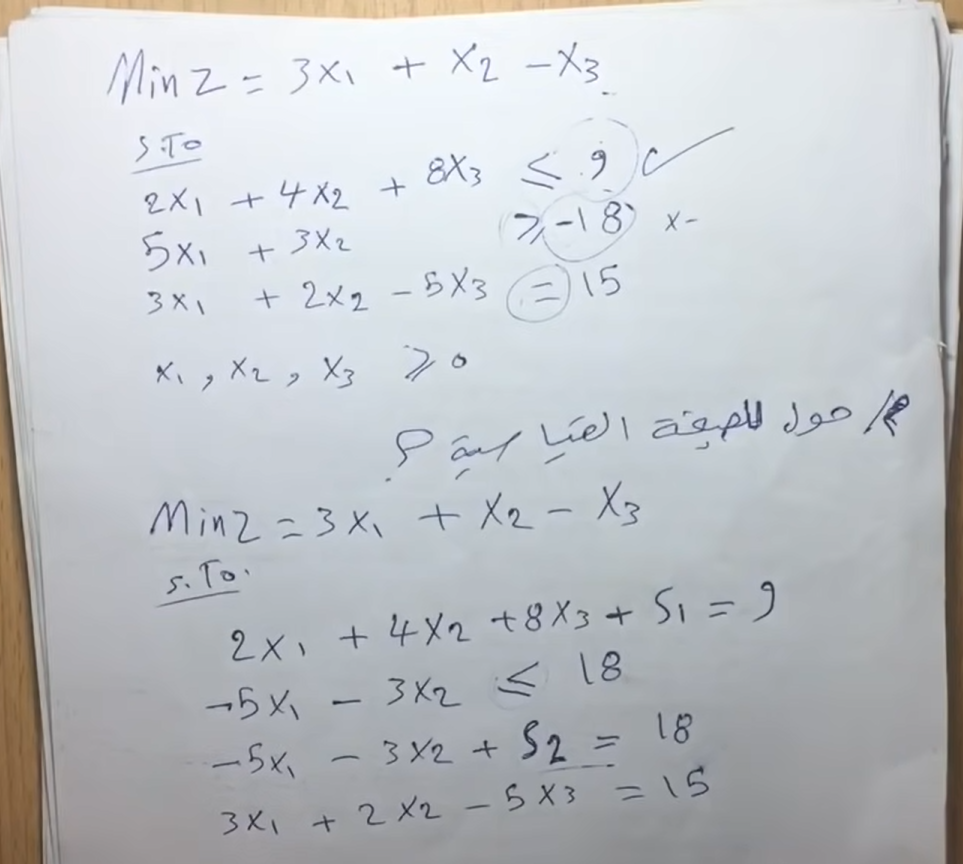 Min Z = 3x₁ + x₂ - x₃
S.To
2x₁ + 4x₂ + 8x₃ ≤ 9
5x₁ + 3x₂ ≥ -18 x-
3x₁ + 2x₂ - 5x₃ = 15
x₁ , x₂ , x₃ ≥ 0
حول للصيغة القياسية ؟
Min Z = 3x₁ + x₂ - x₃
S.To.
2x₁ + 4x₂ + 8x₃ + S₁ = 9
-5x₁ - 3x₂ ≤ 18
-5x₁ - 3x₂ + S₂ = 18
3x₁ + 2x₂ - 5x₃ = 15